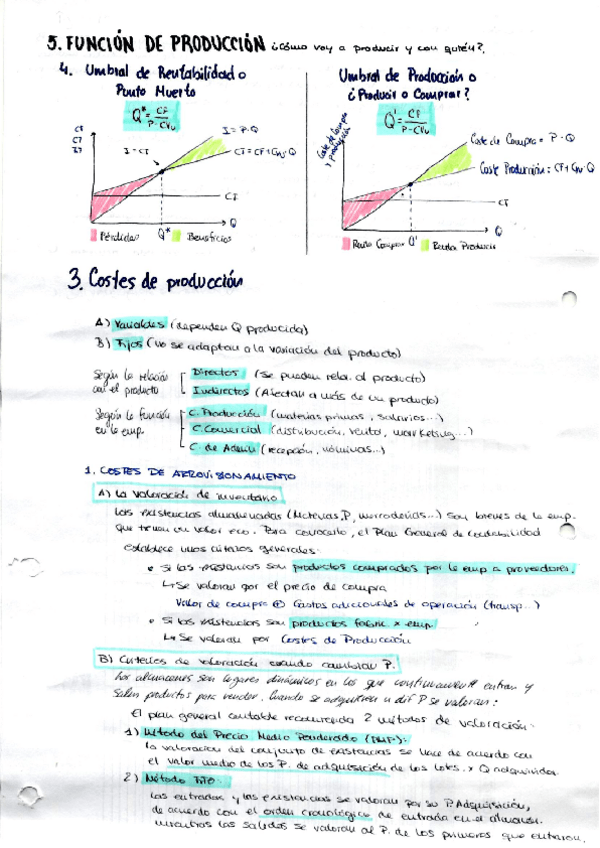 5. FUNCIÓN DE PRODUCCIÓN ¿cómo voy a producir y con quién?
4. Umbral de Rentabilidad o
Punto Muerto
Q* = CF / P-CVu
CF
CT
IT
I = P·Q
I = CT
CT = CF + CVu·Q
CF
Q*
Q
Pérdidas
Beneficios
Umbral de Producción o
¿Producir o Comprar?
Q' = CF / P-CVu
Coste de Compra
y producción
Coste de Compra = P·Q
Coste Producción = CF + CVu·Q
CF
Q'
Q
Renta Comprar
Renta Producir
3. Costes de producción
A) Variables (dependen Q producida)
B) Fijos (no se adaptan a la variación del producto)
Según la relación
con el producto
Directos (Se pueden relac. al producto)
Indirectos (Afectan a más de un producto)
Según la función
en la emp.
C. Producción (materias primas, salarios...)
C. Comercial (distribución, venta, marketing...)
C. de Admin (recepción, nóminas...)
1. COSTES DE APROVISIONAMIENTO
A) La valoración de inventario
Las existencias almacenadas (Materias P, mercaderías...) son bienes de la emp.
que tienen un valor eco. Para conocerlo, el Plan General de Contabilidad
establece unos criterios generales:
• Si las existencias son productos comprados por la emp a proveedores.
↳ Se valoran por el precio de compra
Valor de compra ⊕ Gastos adicionales de operación (transp...)
• Si las existencias son productos fabric. x emp.
↳ Se valoran por Costes de Producción
B) Criterios de valoración cuando cambian P.
Los almacenes son lugares dinámicos en los que continuament entran y
salen productos para vender. Cuando se adquieren a dif P se valoran:
El plan general contable recomienda 2 métodos de valoración:
1) Método del Precio Medio Ponderado (PMP):
la valoración del conjunto de existencias se hace de acuerdo con
el valor medio de los P. de adquisición de los lotes x Q adquirida.
2) Método FIFO:
Las entradas y las existencias se valoran por su P. Adquisición,
de acuerdo con el orden cronológico de entrada en el almacén.
mientras las salidas se valoran al P. de los primeros que entraron.